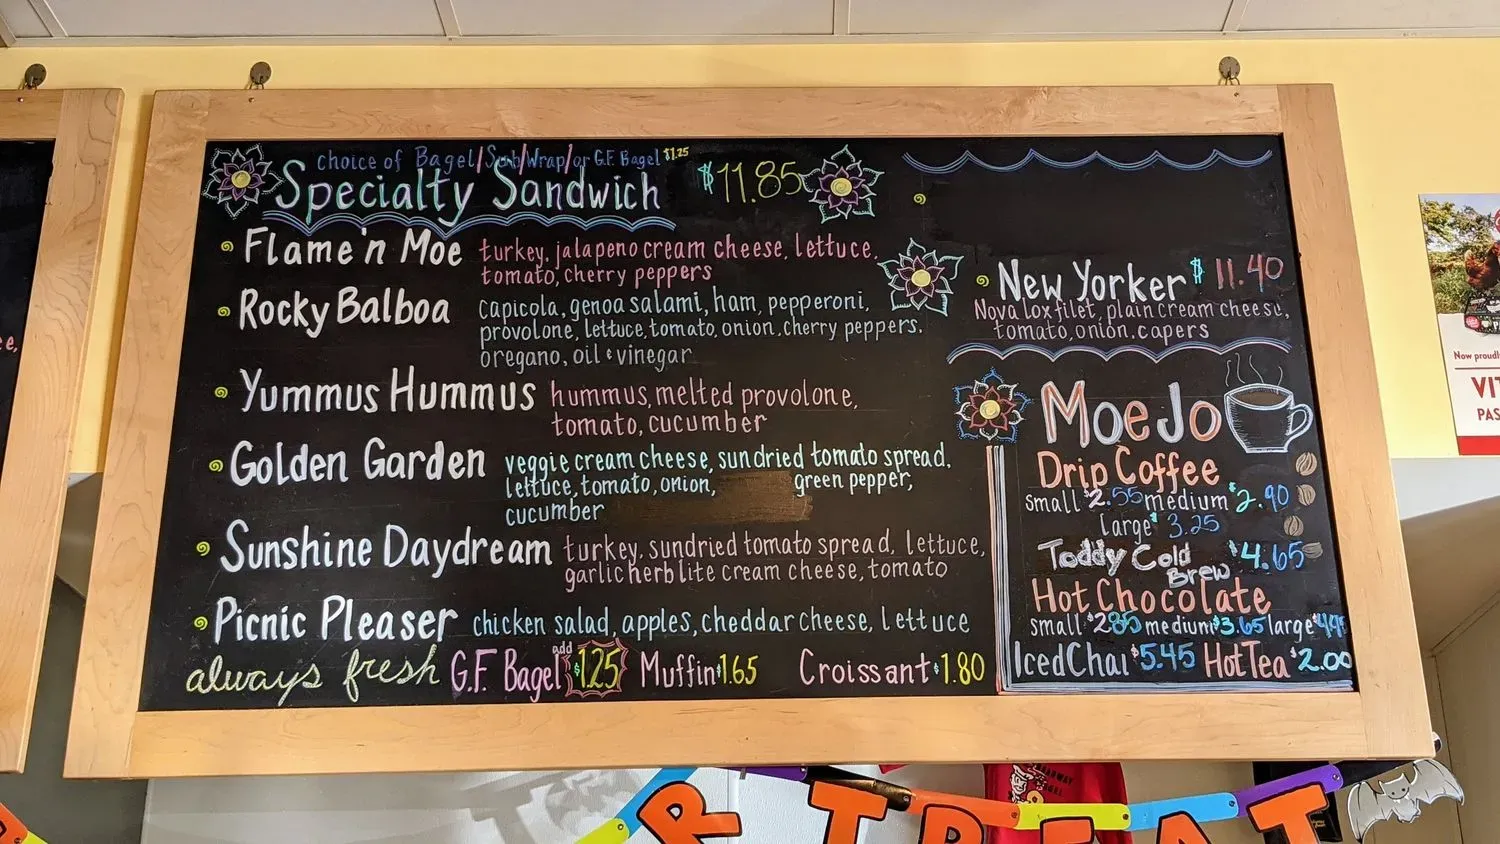 choice of Bagel/Sub/Wrap/or G.F. Bagel $1.25
Specialty Sandwich $11.85
Flame 'n Moe turkey, jalapeno cream cheese, lettuce,
tomato, cherry peppers
Rocky Balboa capicola, genoa salami, ham, pepperoni,
provolone, lettuce, tomato, onion, cherry peppers,
oregano, oil & vinegar
Yummus Hummus hummus, melted provolone,
tomato, cucumber
Golden Garden veggie cream cheese, sundried tomato spread,
lettuce, tomato, onion, green pepper,
cucumber
Sunshine Daydream turkey, sundried tomato spread, lettuce,
garlic herb lite cream cheese, tomato
Picnic Pleaser chicken salad, apples, cheddar cheese, lettuce
always fresh G.F. Bagel add $1.25 Muffin $1.65 Croissant $1.80
New Yorker $11.40
Nova lox filet, plain cream cheese,
tomato, onion, capers
Moe Jo
Drip Coffee
small $2.55 medium $2.90
large $3.25
Toddy Cold $4.65
Brew
Hot Chocolate
small $2.85 medium $3.65 large
Iced Chai $5.45 Hot Tea $2.00
Now proudl
VIT
PAS
R TREAT